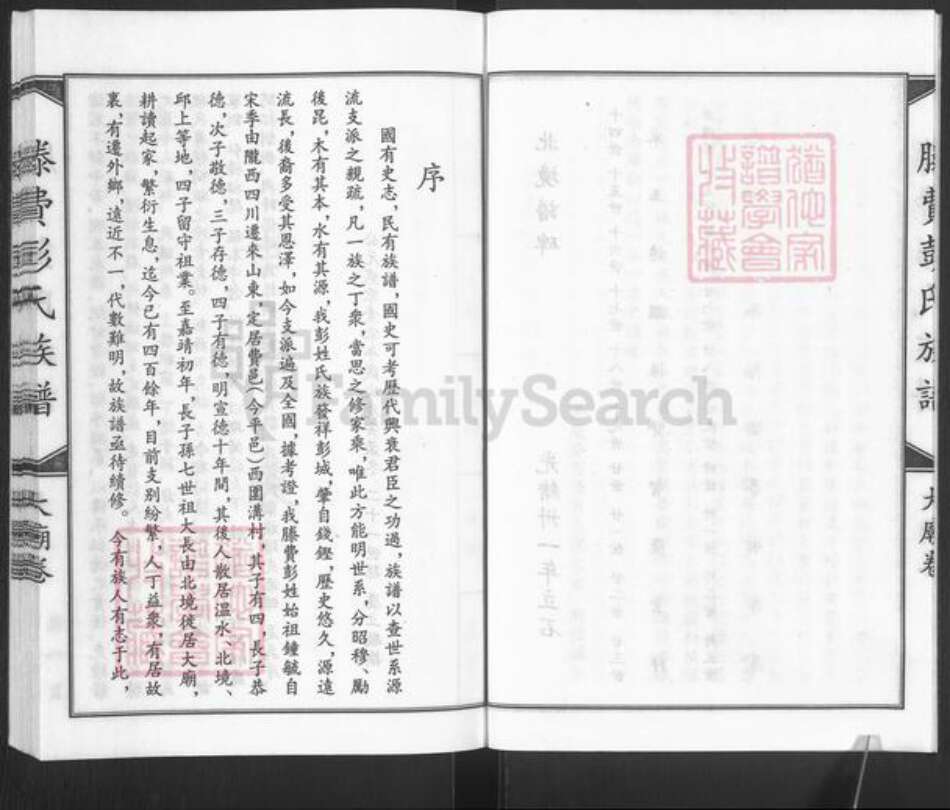 滕費彭氏族譜
大廟卷
猶他家譜學會收藏
序
國有史志，民有族譜，國史可考歷代興衰君臣之功過，族譜以查世系源
流支派之親疏，凡一族之丁衆，當思之修家乘，唯此方能明世系，分昭穆、勵
後昆，木有其本，水有其源，我彭姓氏族發祥彭城，肇自錢鏗，歷史悠久，源遠
流長，後裔多受其恩澤，如今支派遍及全國，據考證，我滕費彭姓始祖鍾毓自
宋季由隴西四川遷來山東，定居費邑（今平邑）西圍溝村，其子有四，長子恭
德，次子敬德，三子存德，四子有德，明宣德十年間，其後人散居溫水、北境、
邱上等地，四子留守祖業。至嘉靖初年，長子孫七世祖大長由北境徙居大廟，
耕讀起家，繁衍生息，迄今已有四百餘年，目前支別紛繁，人丁益衆，有居故
裏，有遷外鄉，遠近不一，代數難明，故族譜亟待續修。今有族人有志于此，
滕費彭氏族譜
大廟卷
FamilySearch